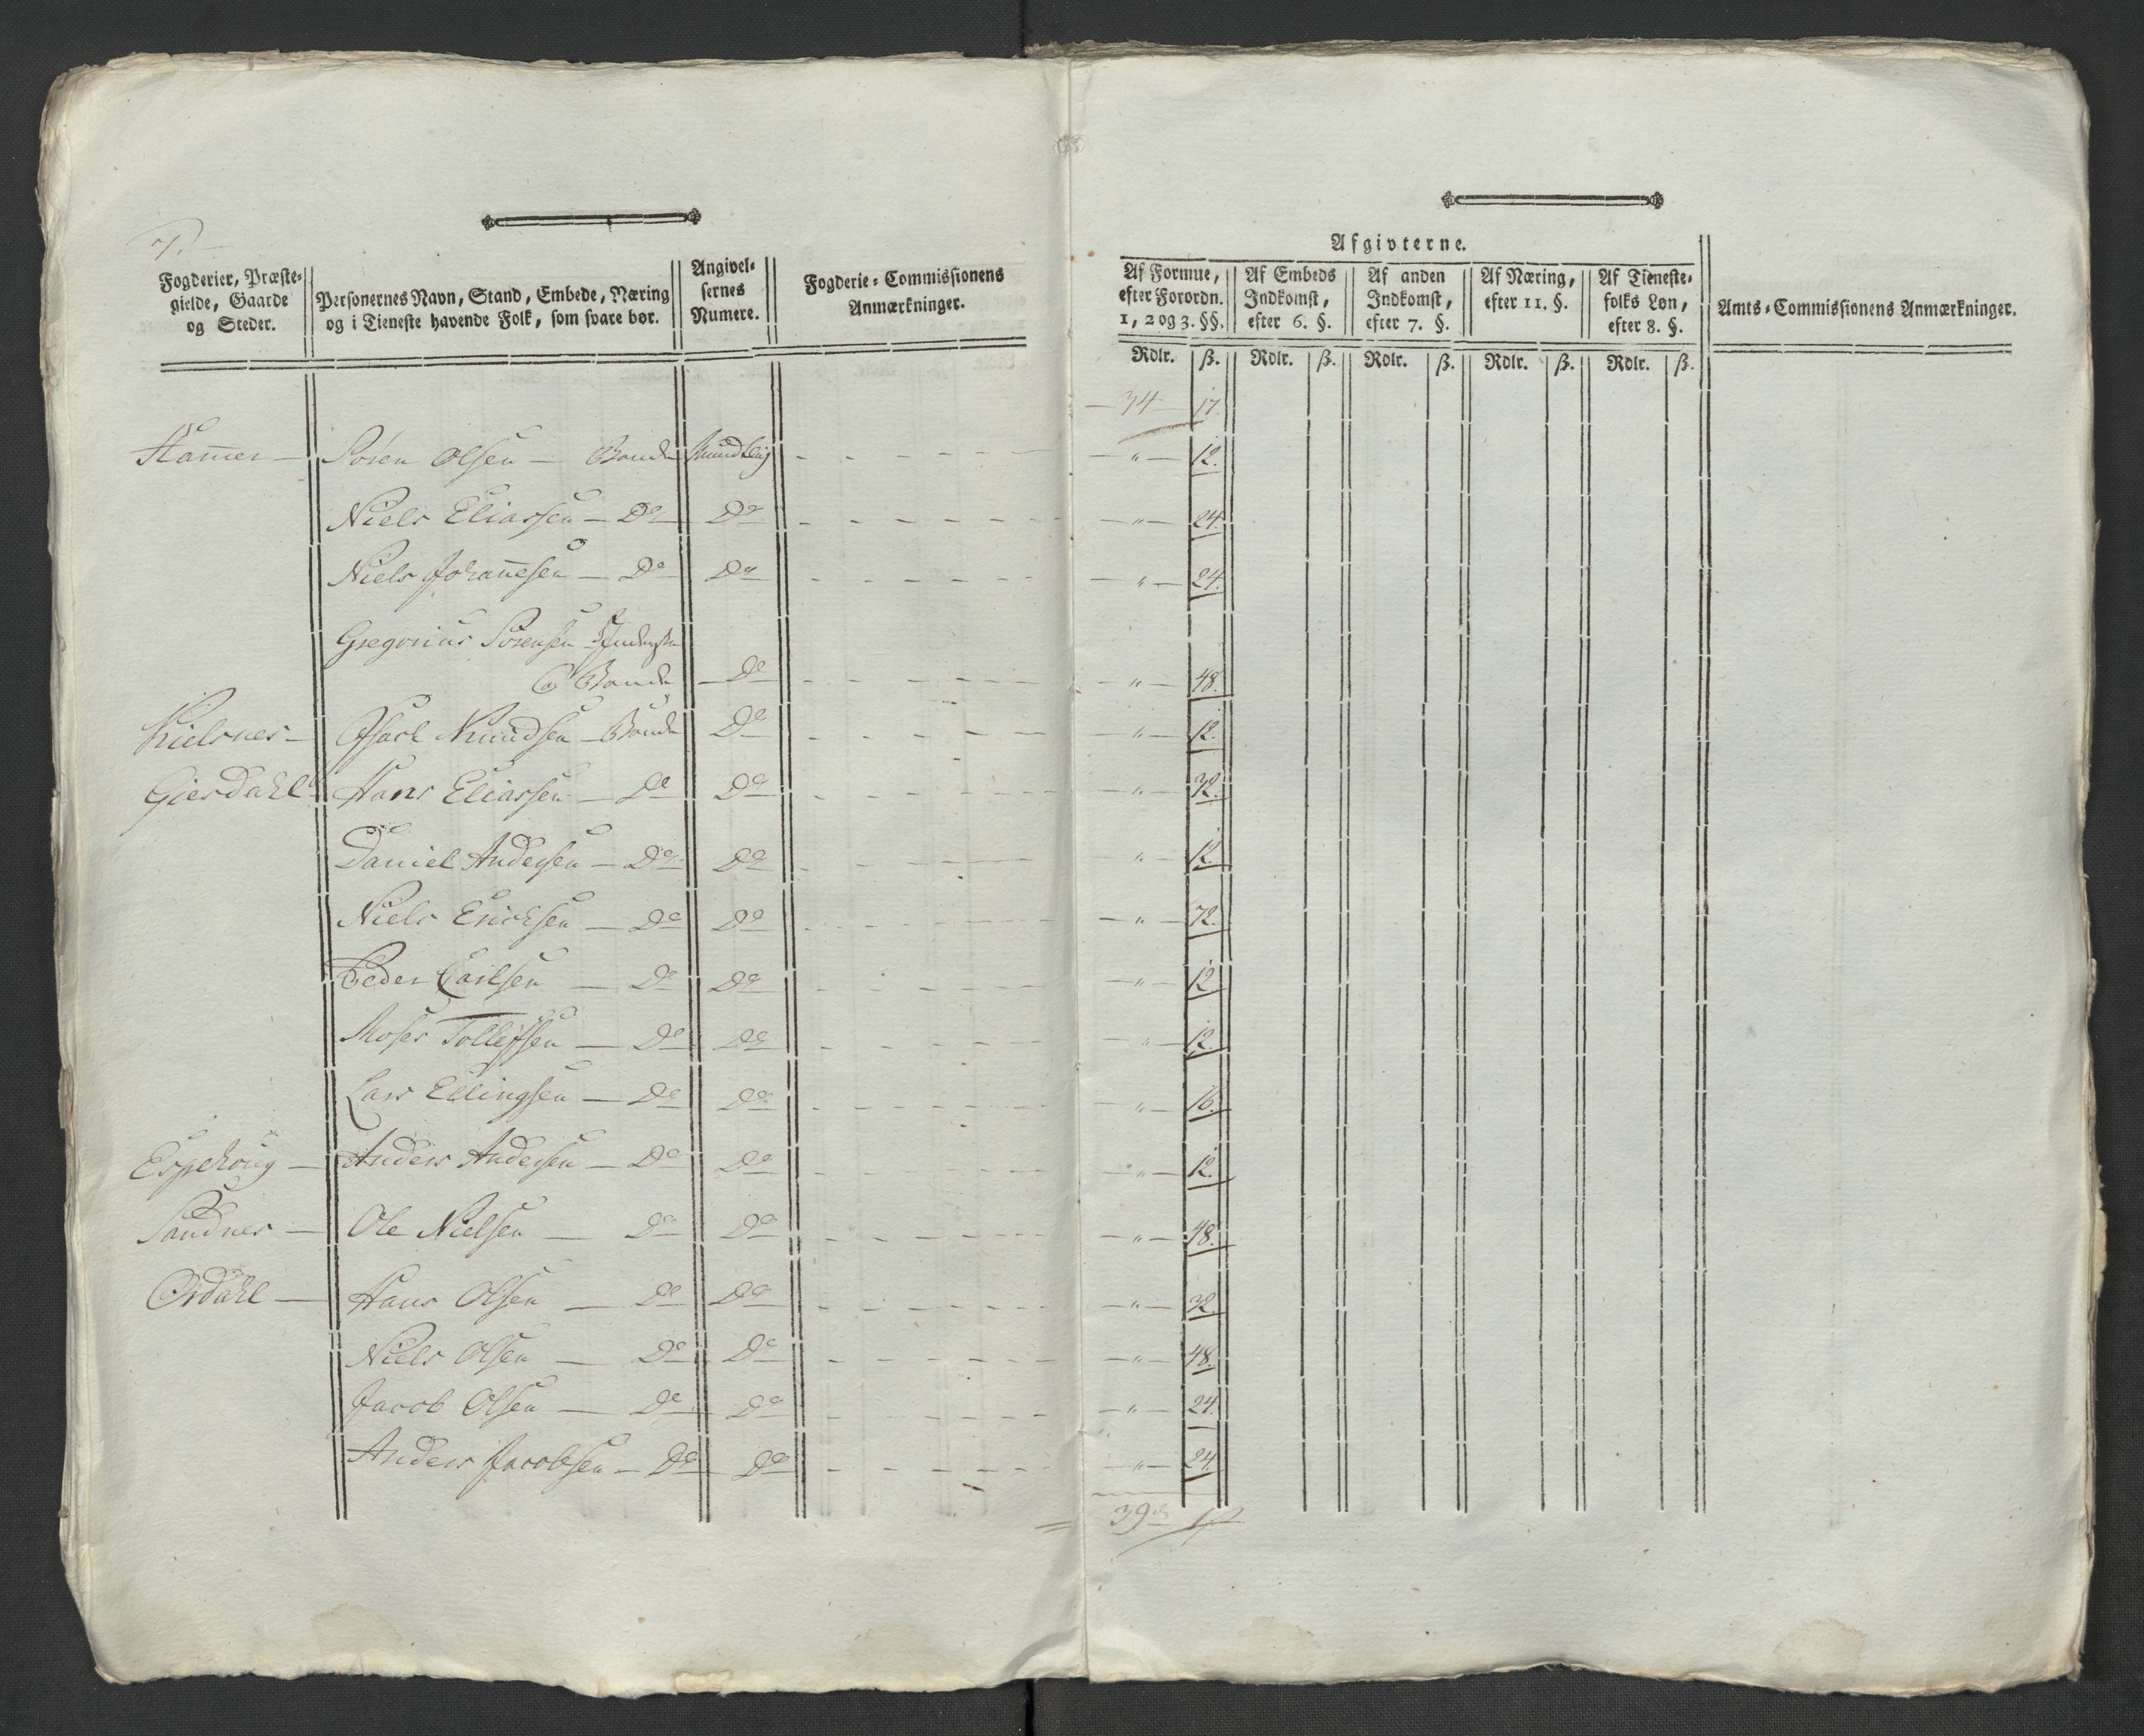 7.
Fogderier, Præste-
gielde, Gaarde
og Steder.
Personernes Navn, Stand, Embede, Næring
og i Tieneste havende Folk, som svare bør.
Angivel-
sernes
Numere.
Fogderie-Commissionens
Anmærkninger.
Afgivterne.
Af Formue,
efter Forordn.
1, 2 og 3. §§.
Af Embeds
Indkomst,
efter 6. §.
Af anden
Indkomst,
efter 7. §.
Af Næring,
efter 11. §.
Af Tieneste-
folks Løn,
efter 8. §.
Amts-Commissionens Anmærkninger.
Rdlr. ß. Rdlr. ß. Rdlr. ß. Rdlr. ß. Rdlr. ß.
34 17.
Ham̄er Søren Olsen Bonde Mundtlig " 12.
Niels Eliassen Do Do " 24.
Niels Johan̄esen Do Do " 24.
Gregorius Sørensen
og Bonde Do " 48.
Kielsnes Knudsen Bonde Do " 12.
Gierdahl Hans Eliassen Do Do " 32.
Daniel Andersen Do Do " 12.
Niels Erichsen Do Do " 72.
Peder Carlsen Do Do " 12.
Moses Tollefsen Do Do " 12.
Lars Ellingsen Do Do " 16.
Espehoug Anders Andersen Do Do " 12.
Sandnes Ole Nielsen Do Do " 48.
Ordahl Hans Olsen Do Do " 32.
Niels Olsen Do Do " 48.
Jacob Olsen Do Do " 24.
Anders Jacobsen Do Do " 24.
39